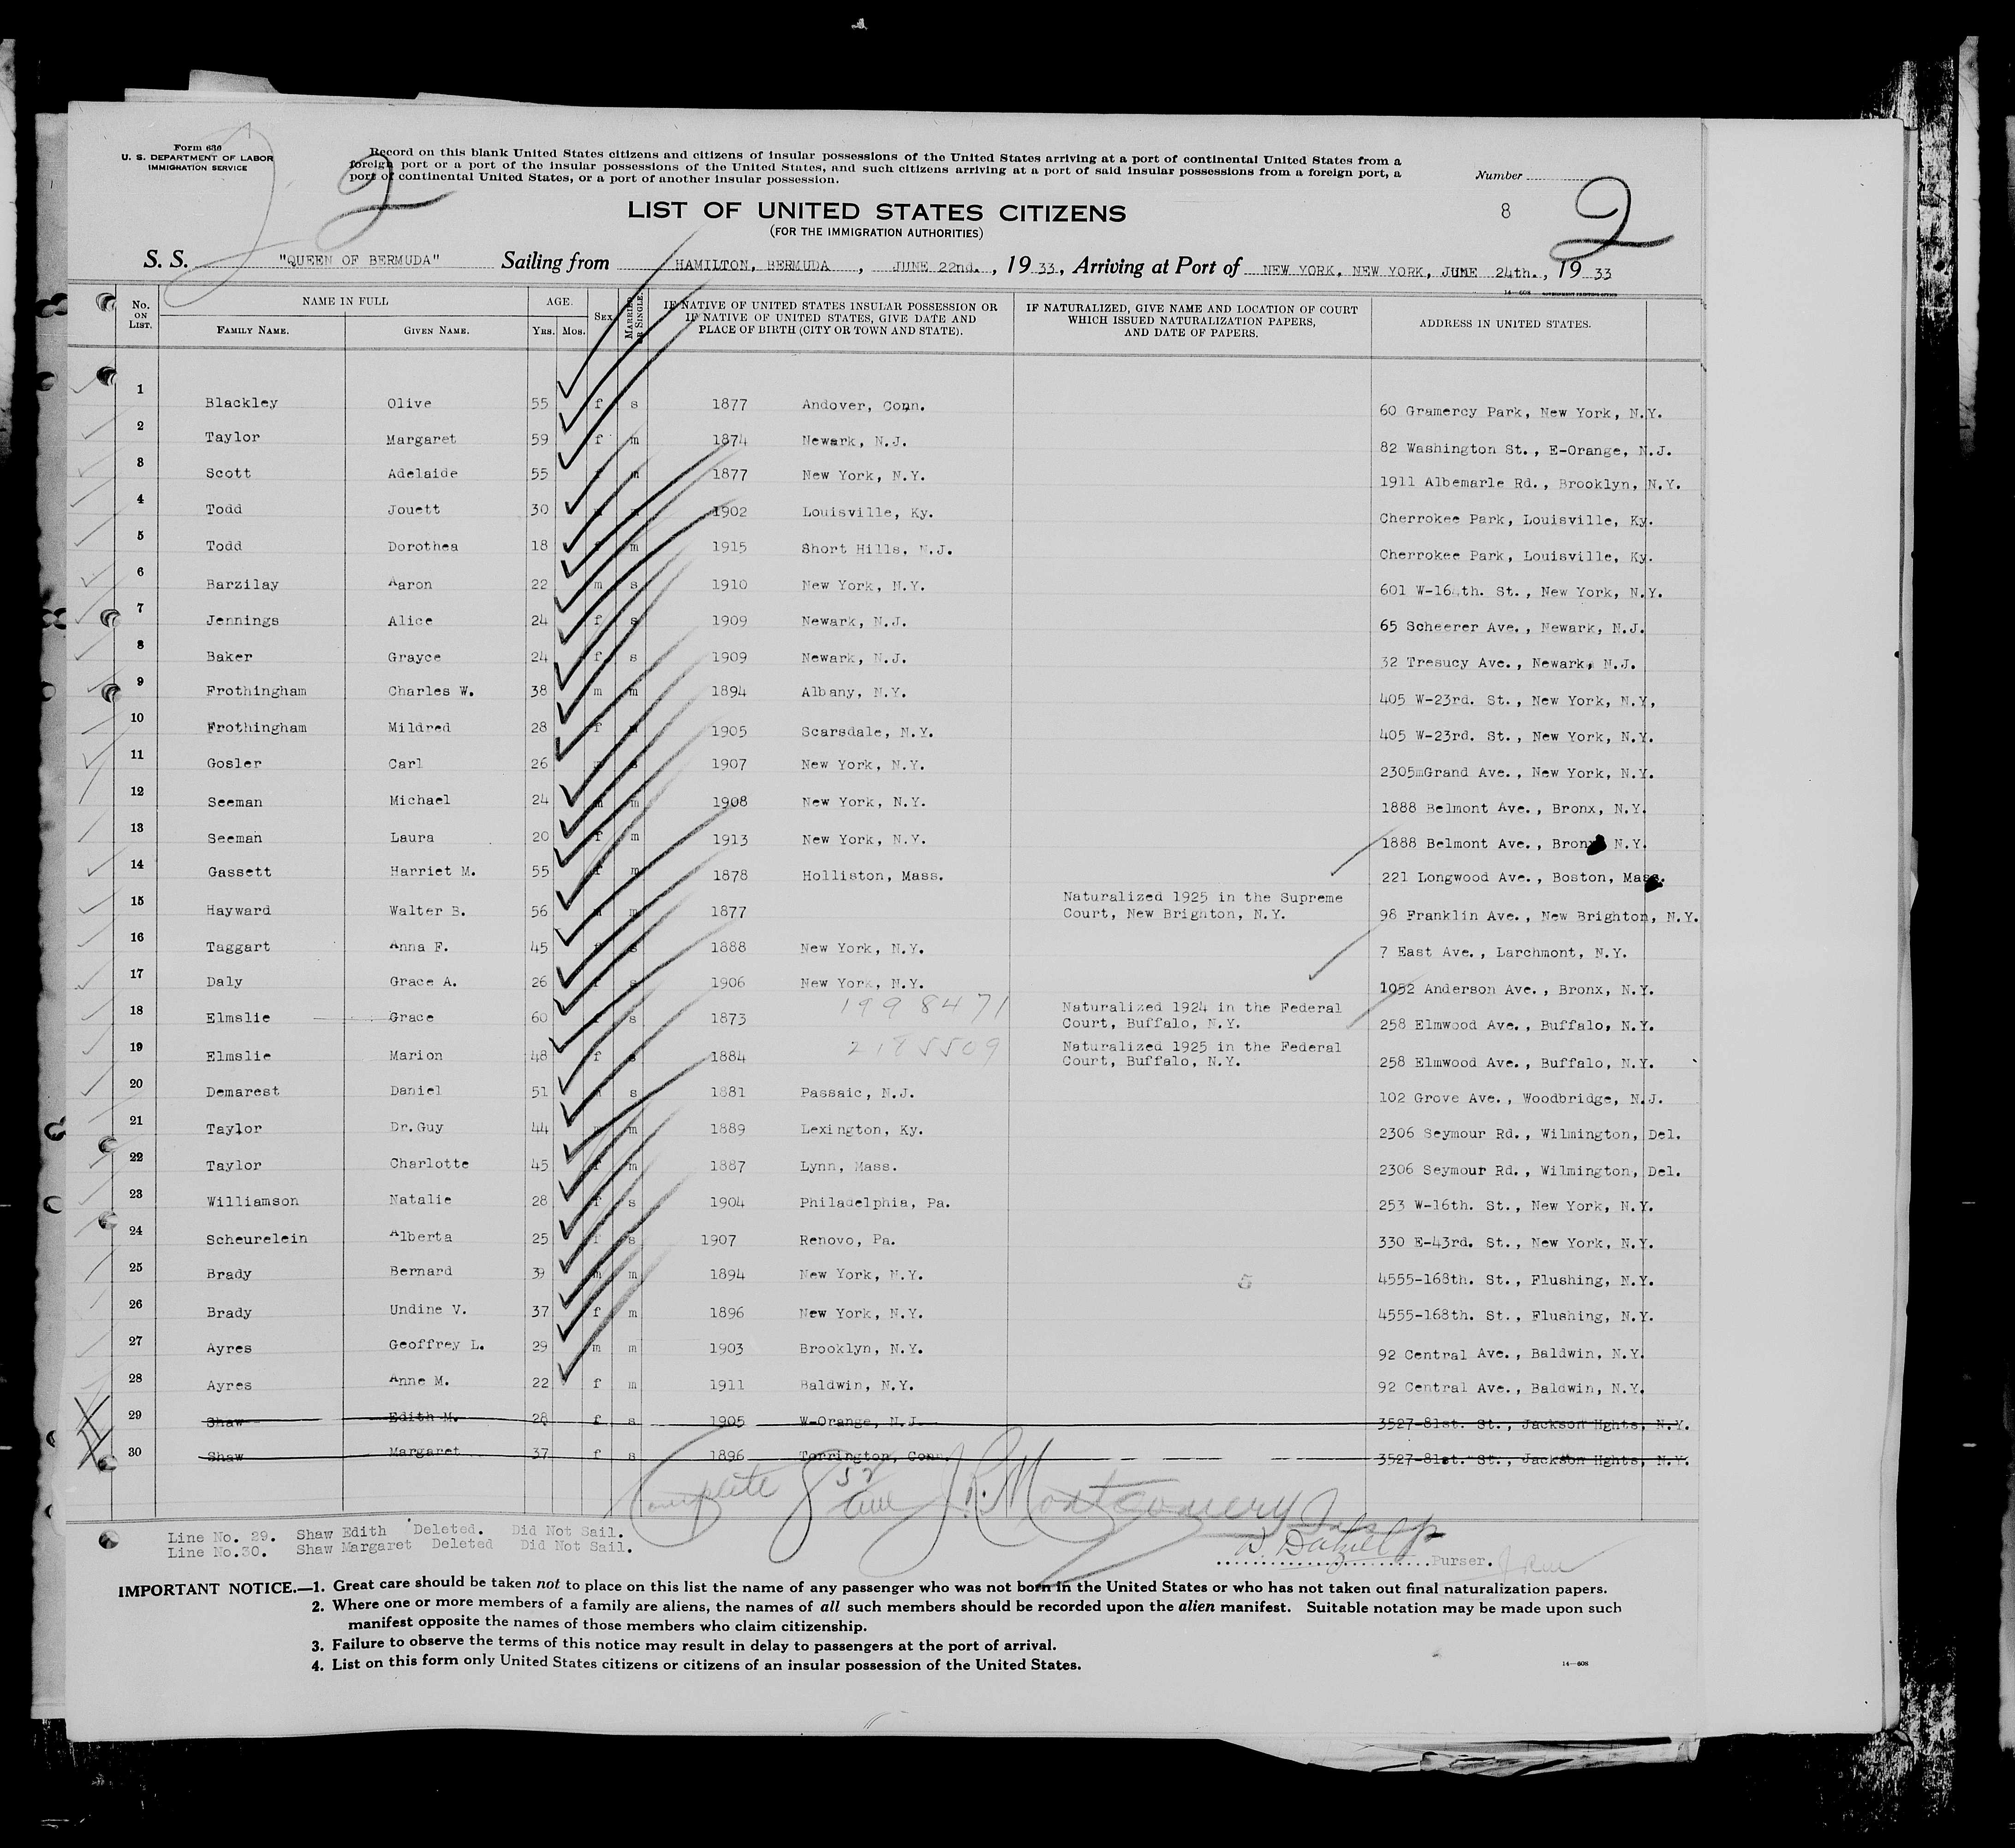 Form 630
U. S. DEPARTMENT OF LABOR
IMMIGRATION SERVICE
2
Record on this blank United States citizens and citizens of insular possessions of the United States arriving at a port of continental United States from a
foreign port or a port of the insular possessions of the United States, and such citizens arriving at a port of said insular possessions from a foreign port, a
port of continental United States, or a port of another insular possession.
Number
LIST OF UNITED STATES CITIZENS
8
2
(FOR THE IMMIGRATION AUTHORITIES)
S. S. "QUEEN OF BERMUDA" Sailing from HAMILTON, BERMUDA, JUNE 22nd., 1933., Arriving at Port of NEW YORK, NEW YORK, JUNE 24th., 1933
14—608 GOVERNMENT PRINTING OFFICE
No. ON LIST. NAME IN FULL FAMILY NAME. GIVEN NAME. AGE. Yrs. Mos. SEX MARRIED OR SINGLE. IF NATIVE OF UNITED STATES INSULAR POSSESSION OR IF NATIVE OF UNITED STATES, GIVE DATE AND PLACE OF BIRTH (CITY OR TOWN AND STATE). IF NATURALIZED, GIVE NAME AND LOCATION OF COURT WHICH ISSUED NATURALIZATION PAPERS, AND DATE OF PAPERS. ADDRESS IN UNITED STATES.
1 Blackley Olive 55 f s 1877 Andover, Conn. 60 Gramercy Park, New York, N.Y.
2 Taylor Margaret 59 f m 1874 Newark, N.J. 82 Washington St., E-Orange, N.J.
3 Scott Adelaide 55 f m 1877 New York, N.Y. 1911 Albemarle Rd., Brooklyn, N.Y.
4 Todd Jouett 30 1902 Louisville, Ky. Cherokee Park, Louisville, Ky.
5 Todd Dorothea 18 f m 1915 Short Hills, N.J. Cherokee Park, Louisville, Ky.
6 Barzilay Aaron 22 m s 1910 New York, N.Y. 601 W- St., New York, N.Y.
7 Jennings Alice 24 f s 1909 Newark, N.J. 65 Scheerer Ave., Newark, N.J.
8 Baker Grayce 24 f s 1909 Newark, N.J. 32 Tresucy Ave., Newark, N.J.
9 Frothingham Charles W. 38 m m 1894 Albany, N.Y. 405 W-23rd. St., New York, N.Y,
10 Frothingham Mildred 28 f 1905 Scarsdale, N.Y. 405 W-23rd. St., New York, N.Y.
11 Gosler Carl 26 s 1907 New York, N.Y. 2305mGrand Ave., New York, N.Y.
12 Seeman Michael 24 m 1908 New York, N.Y. 1888 Belmont Ave., Bronx, N.Y.
13 Seeman Laura 20 f m 1913 New York, N.Y. 1888 Belmont Ave., Bronx N.Y.
14 Gassett Harriet M. 55 f m 1878 Holliston, Mass. 221 Longwood Ave., Boston, Mass.
15 Hayward Walter B. 56 m 1877 Naturalized 1925 in the Supreme Court, New Brighton, N.Y. 98 Franklin Ave., New Brighton, N.Y.
16 Taggart Anna F. 45 f s 1888 New York, N.Y. 7 East Ave., Larchmont, N.Y.
17 Daly Grace A. 26 f s 1906 New York, N.Y. 1052 Anderson Ave., Bronx, N.Y.
18 Elmslie Grace 60 s 1873 1998471 Naturalized 1924 in the Federal Court, Buffalo, N.Y. 258 Elmwood Ave., Buffalo, N.Y.
19 Elmslie Marion 48 f s 1884 2185509 Naturalized 1925 in the Federal Court, Buffalo, N.Y. 258 Elmwood Ave., Buffalo, N.Y.
20 Demarest Daniel 51 s 1881 Passaic, N.J. 102 Grove Ave., Woodbridge, N.J.
21 Taylor Dr.Guy 44 m 1889 Lexington, Ky. 2306 Seymour Rd., Wilmington, Del.
22 Taylor Charlotte 45 f m 1887 Lynn, Mass. 2306 Seymour Rd., Wilmington, Del.
23 Williamson Natalie 28 f s 1904 Philadelphia, Pa. 253 W-16th. St., New York, N.Y.
24 Scheurelein Alberta 25 f s 1907 Renovo, Pa. 330 E-43rd. St., New York, N.Y.
25 Brady Bernard 39 m m 1894 New York, N.Y. 4555-168th. St., Flushing, N.Y.
26 Brady Undine V. 37 f m 1896 New York, N.Y. 4555-168th. St., Flushing, N.Y.
27 Ayres Geoffrey L. 29 m m 1903 Brooklyn, N.Y. 92 Central Ave., Baldwin, N.Y.
28 Ayres Anne M. 22 f m 1911 Baldwin, N.Y. 92 Central Ave., Baldwin, N.Y.
29 Shaw Edith M. 28 f s 1905 W-Orange, N.J. 3527-81st. St., Jackson Hghts, N.Y.
30 Shaw Margaret 37 f s 1896 Torrington, Conn. 3527-81st. St., Jackson Hghts, N.Y.
Complete J. P. Montgomery
Line No. 29. Shaw Edith Deleted. Did Not Sail.
Line No.30. Shaw Margaret Deleted Did Not Sail.
Purser.
IMPORTANT NOTICE.—1. Great care should be taken not to place on this list the name of any passenger who was not born in the United States or who has not taken out final naturalization papers.
2. Where one or more members of a family are aliens, the names of all such members should be recorded upon the alien manifest. Suitable notation may be made upon such
manifest opposite the names of those members who claim citizenship.
3. Failure to observe the terms of this notice may result in delay to passengers at the port of arrival.
4. List on this form only United States citizens or citizens of an insular possession of the United States.
14—608